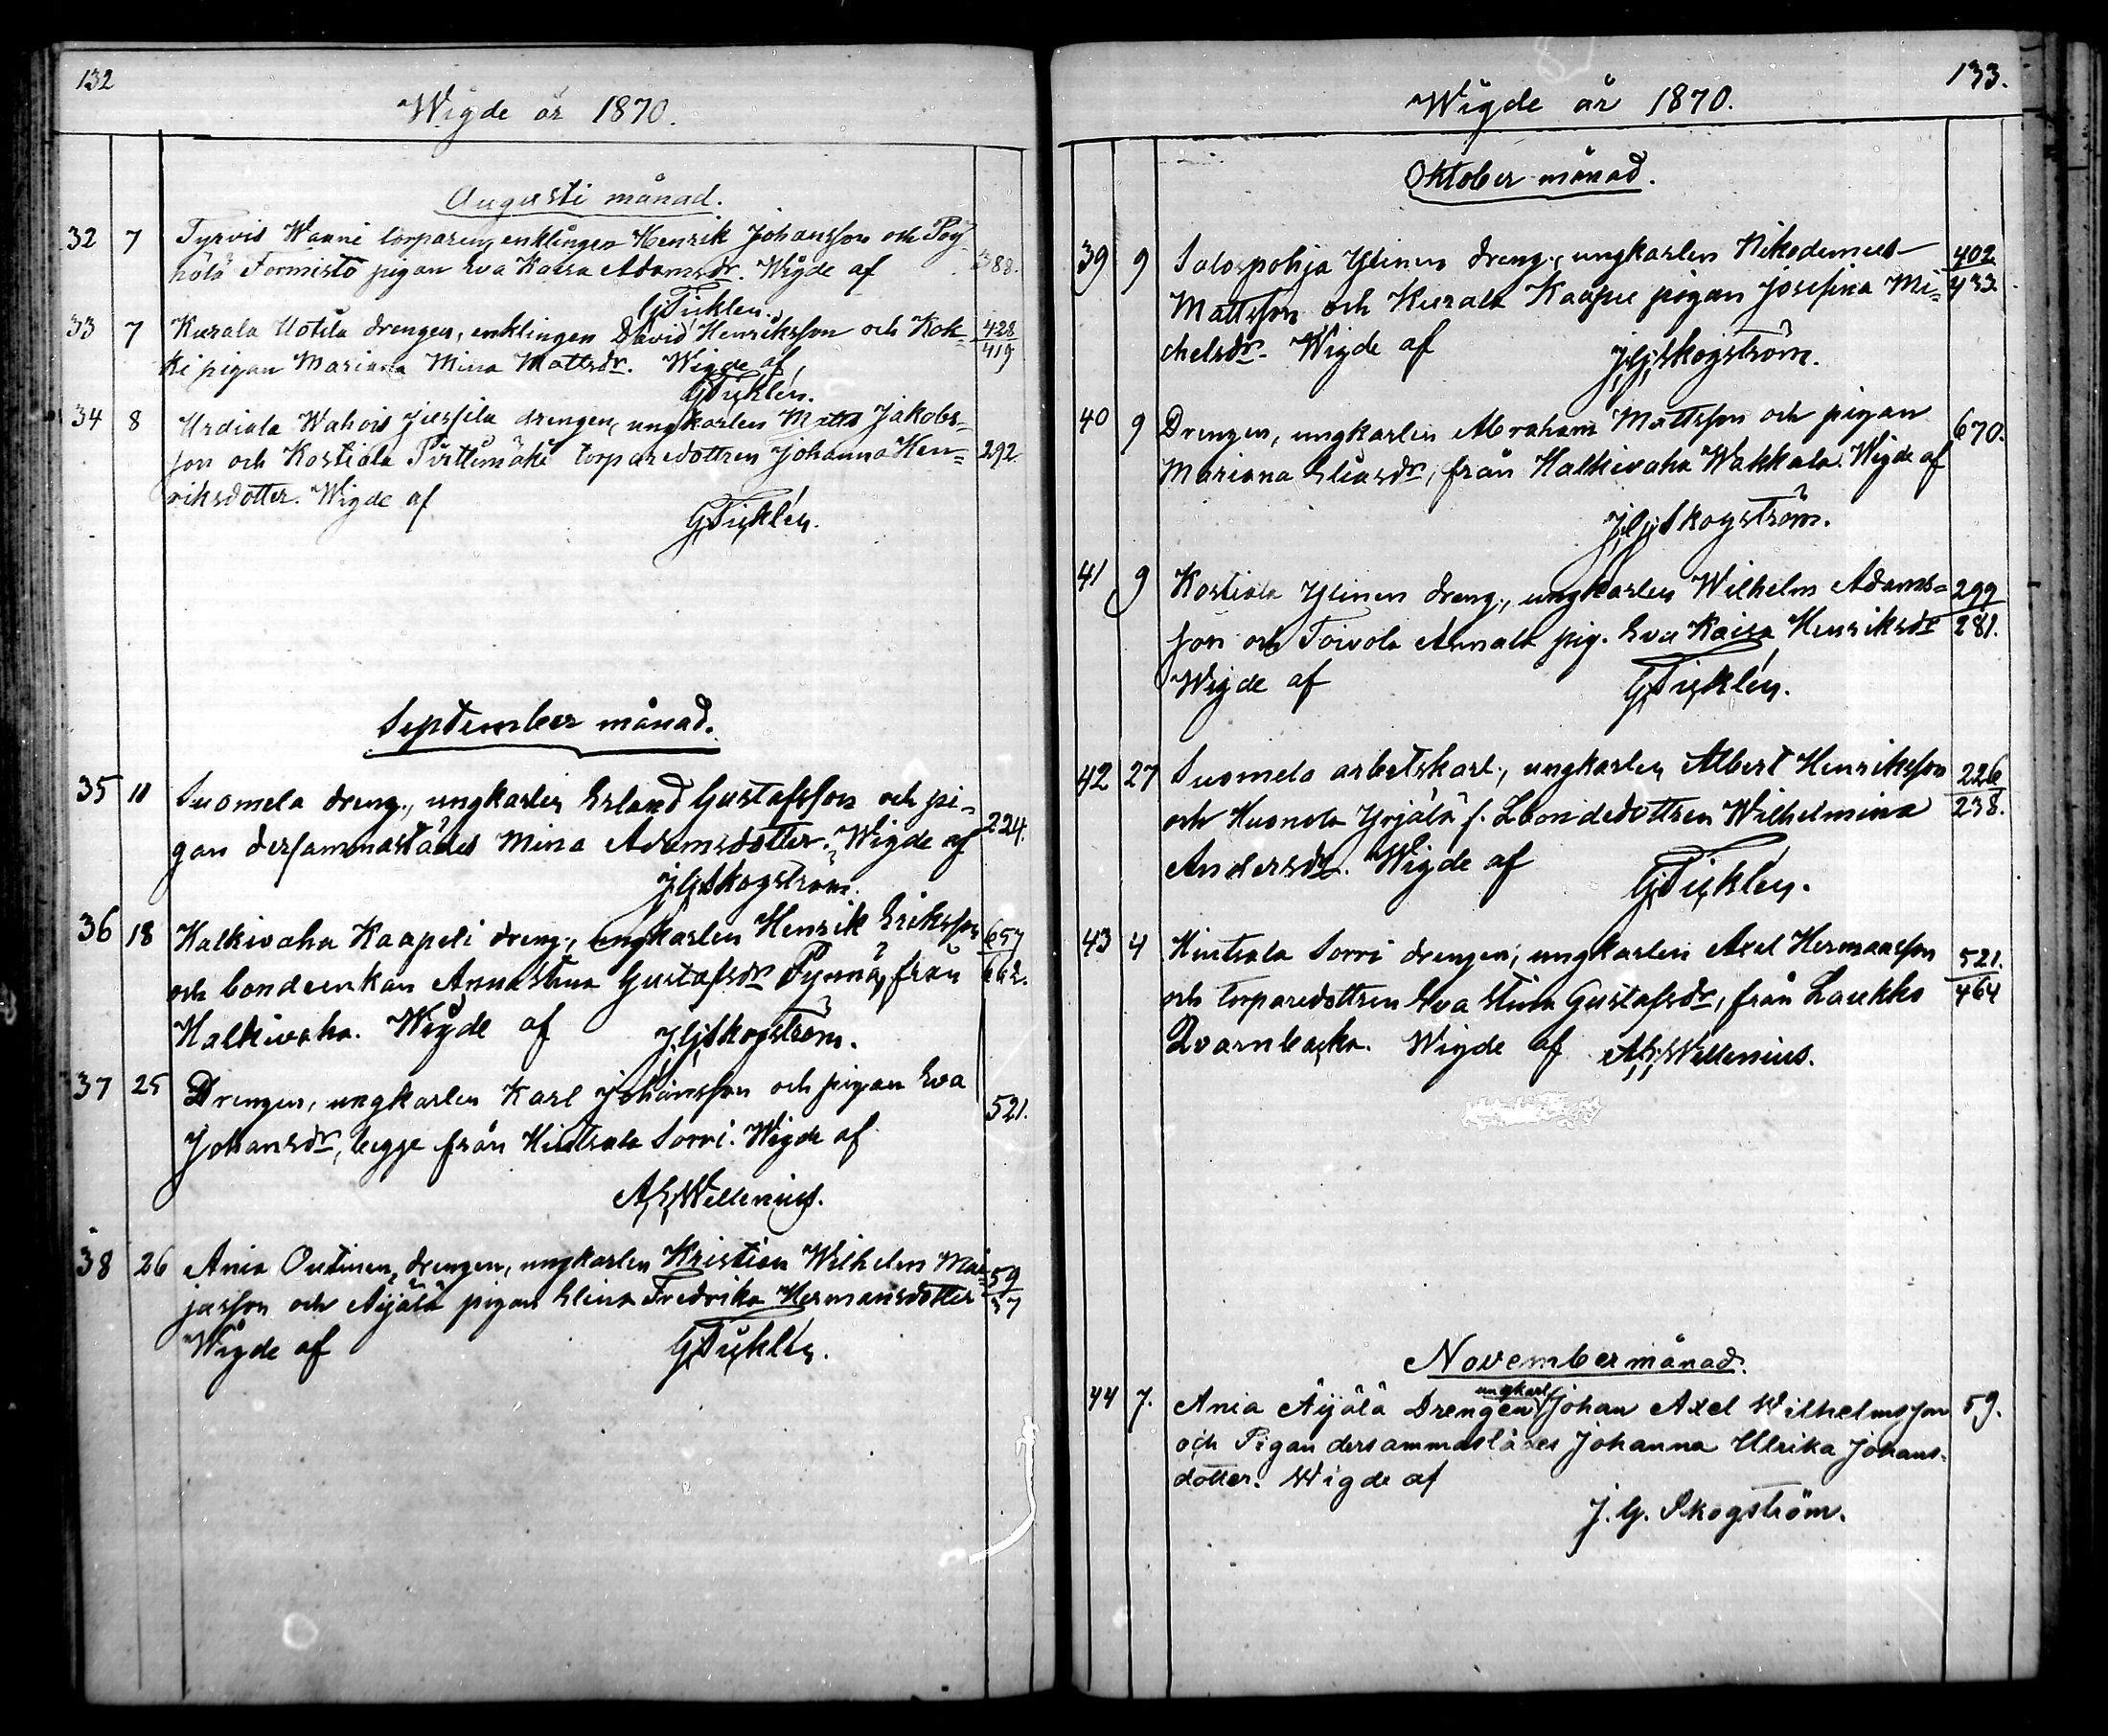 132
Wigde år 1870.
Augusti månad.
32 7 Tyrvis Wanni torparen, enklingen Henrik Johansson och Pöy-
hölä Formisto pigan Eva Kaisa Adamsdr. Wigde af 388.
G. Ticklén.
33 7 Kurala Uotila drengen, enklingen David Henriksson och Kok- 428
ki pigan Mariana Mina Mattsdr. Wigde af 419
G. Ticklén.
34 8 Urdiala Wahois Jussila drengen, ungkarlen Matts Jakobs-
son och Kostiala Pirttimäki torparedottren Johanna Hen- 292
riksdotter. Wigde af
G. Ticklén.
September månad.
35 11 Suomela dreng., ungkarlen Erland Gustafsson och pi-
gan dersammastädes Mina Adamsdotter. Wigde af 224.
J. G. Skogström.
36 18 Halkivaha Kaapeli dreng., ungkarlen Henrik Eriksson 657
och bondeenkan Annastina Gustafsdr Pynnä, från 662.
Halkivaha. Wigde af J. G. Skogström.
37 25 Drengen, ungkarlen Karl Johansson och pigan Eva
Johansdr, begge från Hintsala Sorri. Wigde af 521.
A. E. Wellenius.
38 26 Ania Outinen drengen, ungkarlen Kristian Wilhelm Mai- 59
jasson och Äijälä pigan Elina Fredrika Hermansdotter 57
Wigde af G. Ticklén.
133.
Wigde år 1870.
Oktober månad.
39 9 Salospohja Ylinen dreng., ungkarlen Nikodemus 402
Mattsson och Kurala Kaapu pigan Josefina Mi- 433.
chelsdr. Wigde af J. G. Skogström.
40 9 Drengen, ungkarlen Abraham Mattsson och pigan 670.
Mariana Eliasdr, från Halkivaha Wakkala. Wigde af
J. G. Skogström.
41 9 Kostiala Ylinen dreng., ungkarlen Wilhelm Adams- 299
son och Toivola Annala pig. Eva Kaisa Henriksdr 281.
Wigde af G. Ticklén.
42 27 Suomela arbetskarl., ungkarlen Albert Henriksson 226
och Huonola Yrjälä f. bondedottren Wilhelmina 238.
Andersdr. Wigde af G. Ticklén.
43 4 Hintsala Sorri drengen, ungkarlen Axel Hermansson 521.
och torparedottren Eva Stina Gustafsdr, från Laukko 464
Qvarnbacka. Wigde af A. E. Wellenius.
November månad.
44 7. Ania Äijälä Drengen ungkarl. Johan Axel Wilhelmsson 59.
och Pigan dersammastädes Johanna Ulrika Johans-
dotter. Wigde af
J. G. Skogström.